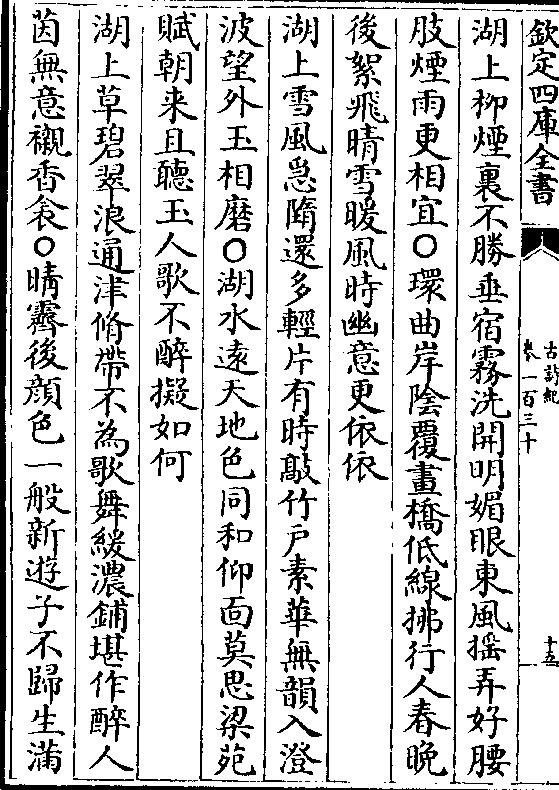 欽定四庫全書
古詩紀
卷一百三十
十五
湖上柳煙裏不勝垂宿霧洗開明媚眼東風搖弄好腰
肢煙雨更相宜○環曲岸陰覆畫橋低線拂行人春晚
後絮飛晴雪暖風時幽意更依依
湖上雪風急隋還多輕片有時敲竹戶素華無韻入澄
波望外玉相磨○湖水遠天地色同和仰面莫思梁苑
賦朝来且聽玉人歌不醉擬如何
湖上草碧翠浪通津脩帶不為歌舞緩濃鋪堪作醉人
茵無意襯香衾○晴霽後顔色一般新遊子不歸生滿